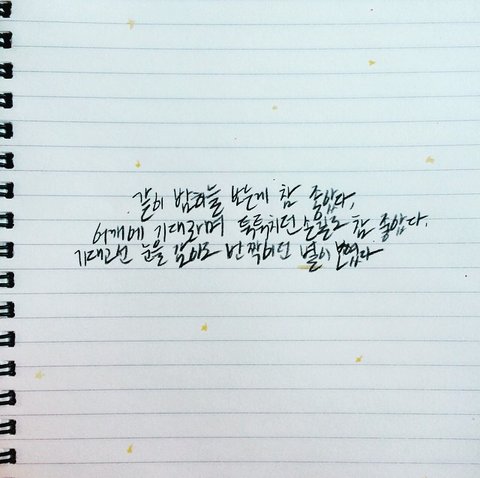 같이 밤하늘 보는게 참 좋았다,
어깨에 기대라며 툭툭치던 손길도 참 좋았다.
기대고선 눈을 감아도 반짝이던 별이 보였다